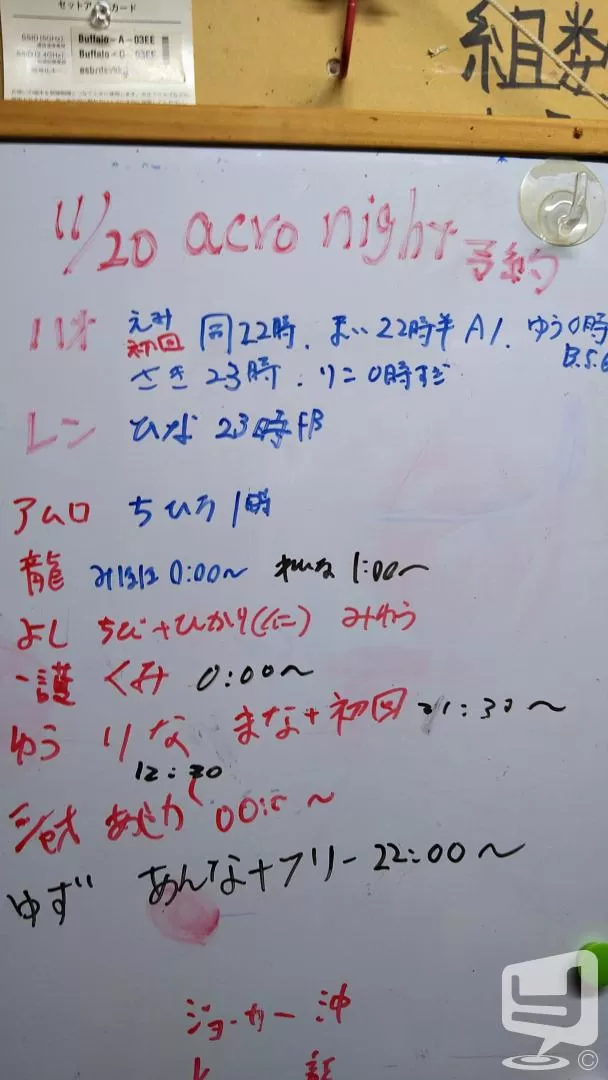 セットアップカード
Buffalo-A-03EE
Buffalo-G-03EE
組数
11/20 acro night 予約
ハオ えみ 初回 同22時. まい 22時半 A1. ゆう0時 B.5.6
さき 23時. りこ 0時すぎ
レン ひな 23時半
アムロ ちひろ 1時
龍 みほほ 0:00〜 れいな 1:00〜
よし ちび+ひかり(仁) みゆう
一護 くみ 0:00〜
ゆう りな まな+初回 21:30〜
12:30
あじか 00:
ゆず あんな+フリー 22:00〜
ジョーカー 沖